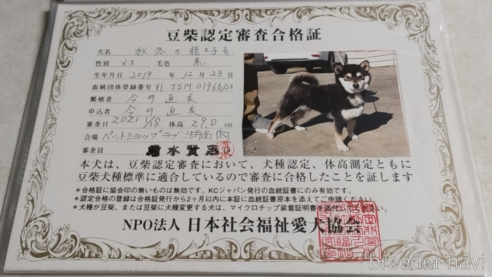 豆柴認定審査合格証
犬名
性別 メス 毛色 黒
生年月日 2019年 12月 23日
血統団体登録番号
繁殖者 今井
申込者 今井
審査日 2021 体高 29.0 cm
会場
審査員
本犬は、豆柴認定審査において、犬種認定、体高測定ともに
豆柴犬種標準に適合しているので審査に合格したことを証します
＊合格証に協会印の無いものは無効です。KCジャパン発行の血統証書にのみ有効です。
＊認定合格の登録は合格証発行から2ヶ月以内に本証に血統証書原本を添えてご申請ください。
＊犬種が豆柴、または豆柴に犬種変更する犬は、マイクロチップ装着証明書を
NPO法人 日本社会福祉愛犬協会
breeder navi